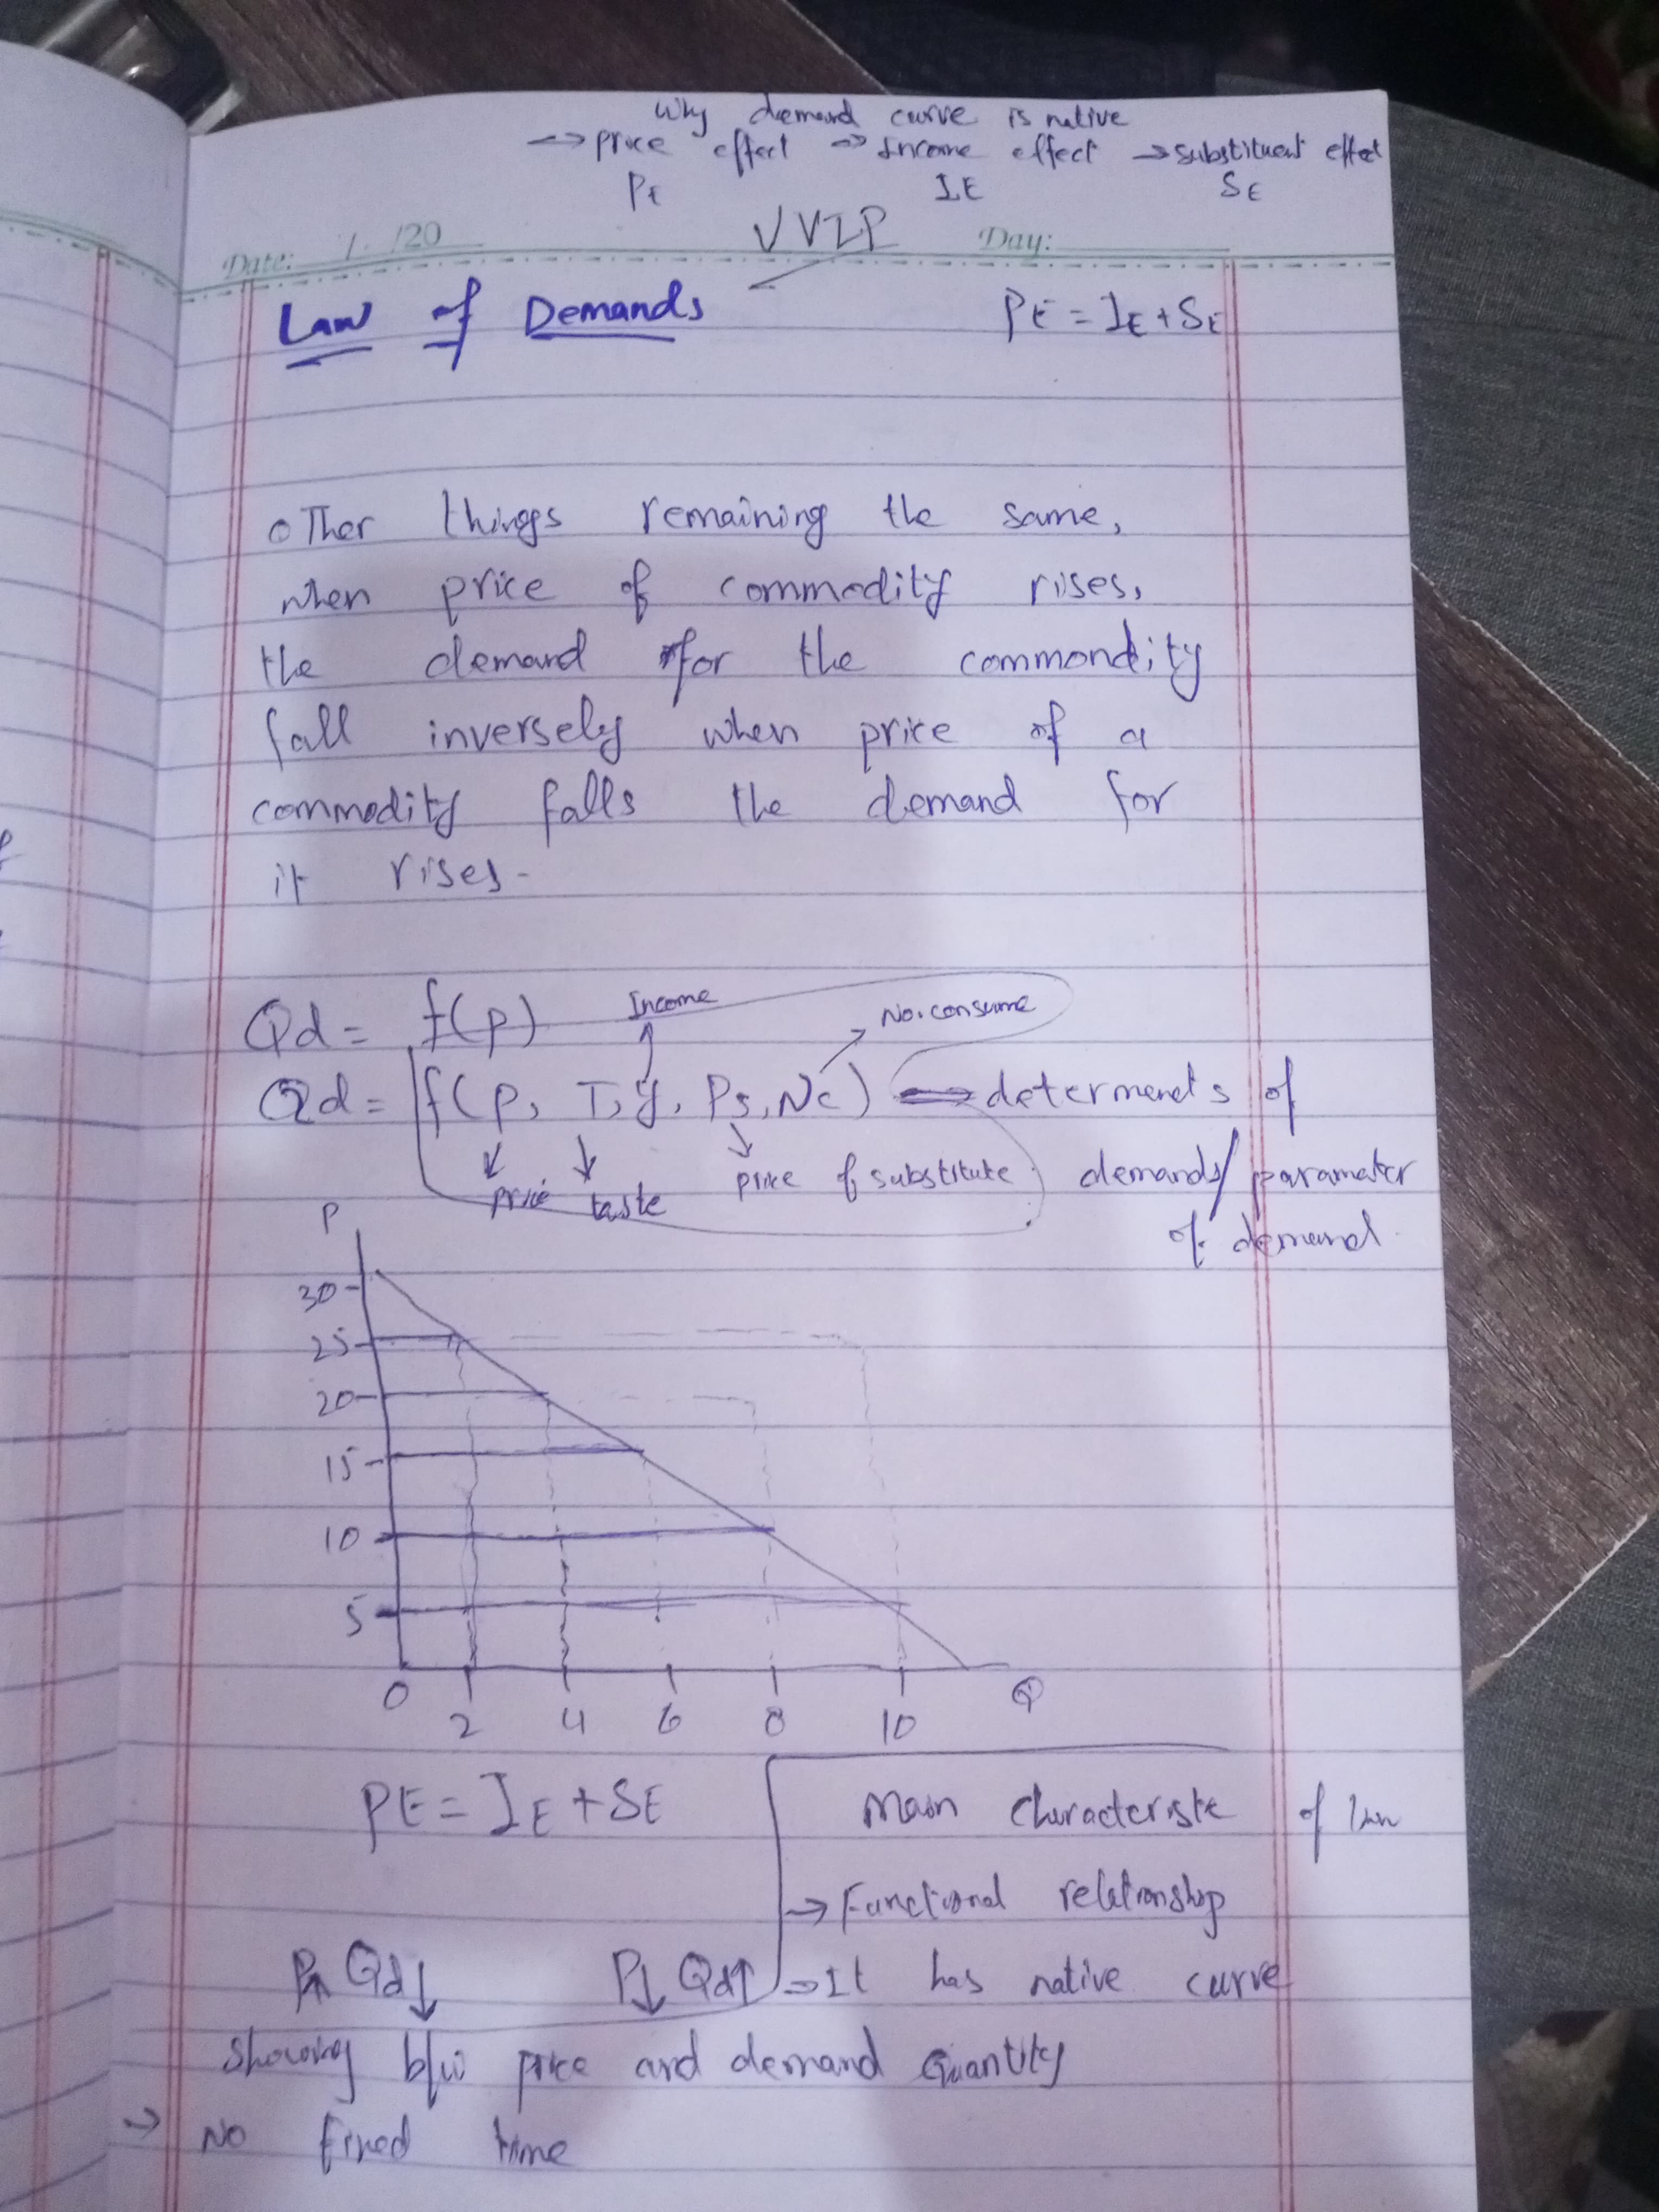 Why demand curve is native
→ price effect → Income effect → substituent effect
PE IE SE
Date: /20 VVIP Day:
Law of Demands PE = IE + SE
Other things remaining the same,
when price of commodity rises,
the demand for the commondity
fall inversely when price of a
commodity falls the demand for
it rises.
Qd = f(p) Income No. consume
Qd = f(p, T, y, Ps, Nc) determenets of
price taste price of substitute demands/parameter
of demand.
P
30
25
20
15
10
5
0 2 4 6 8 10 Q
PE = IE + SE Main characteriste of law
→ Functional relationship
P↑ Qd↓ P↓ Qd↑ → It has native curve
showing b/w price and demand Quantity
→ No fixed time